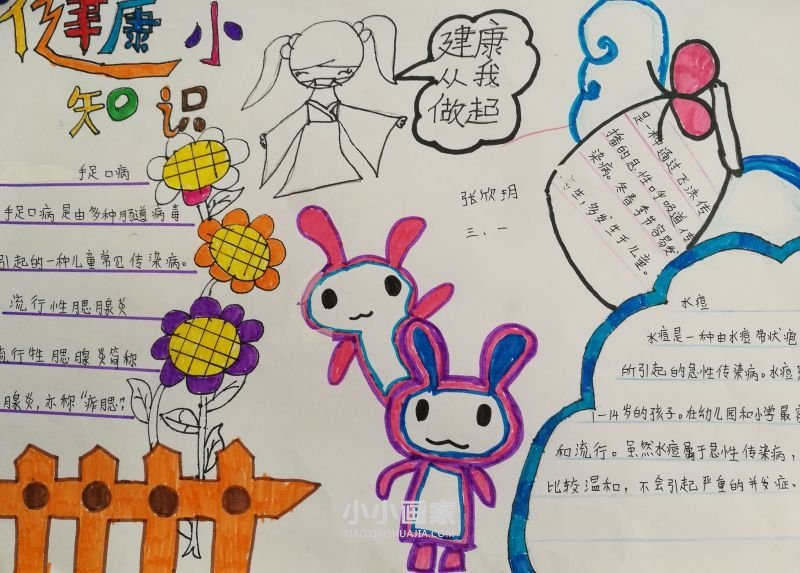 健康小
知识
建康
从我
做起
手足口病
手足口病是由多种肠道病毒
引起的一种儿童常见传染病。
流行性腮腺炎
流行性腮腺炎简称
腮腺炎，亦称“痄腮”，
张欣玥
三、一
是一种通过飞沫传
播的急性呼吸道传
染病。冬春季节容易发
生，多发生于儿童。
水痘
水痘是一种由水痘带状疱
所引起的急性传染病。水痘
1-14岁的孩子。在幼儿园和小学最容
和流行。虽然水痘属于急性传染病，
比较温和，不会引起严重的并发症。
小小画家
XIAOXIAOHUAJIA.COM